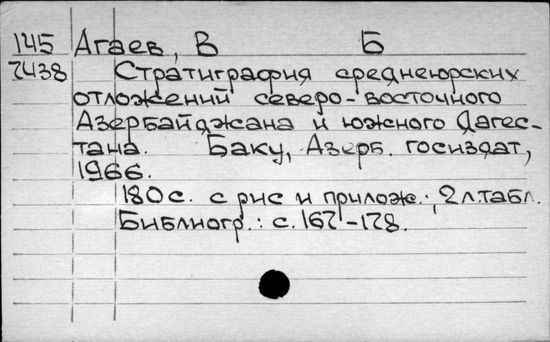 145 Агаев, В Б
7438 Стратиграфия среднеюрских
отложений северо-восточного
Азербайджана и южного Дагес-
тана. Баку, Азерб. госиздат,
1966.
180 с. с рис и прилож.; 2 л. табл.
Библиогр.: с. 167-178.